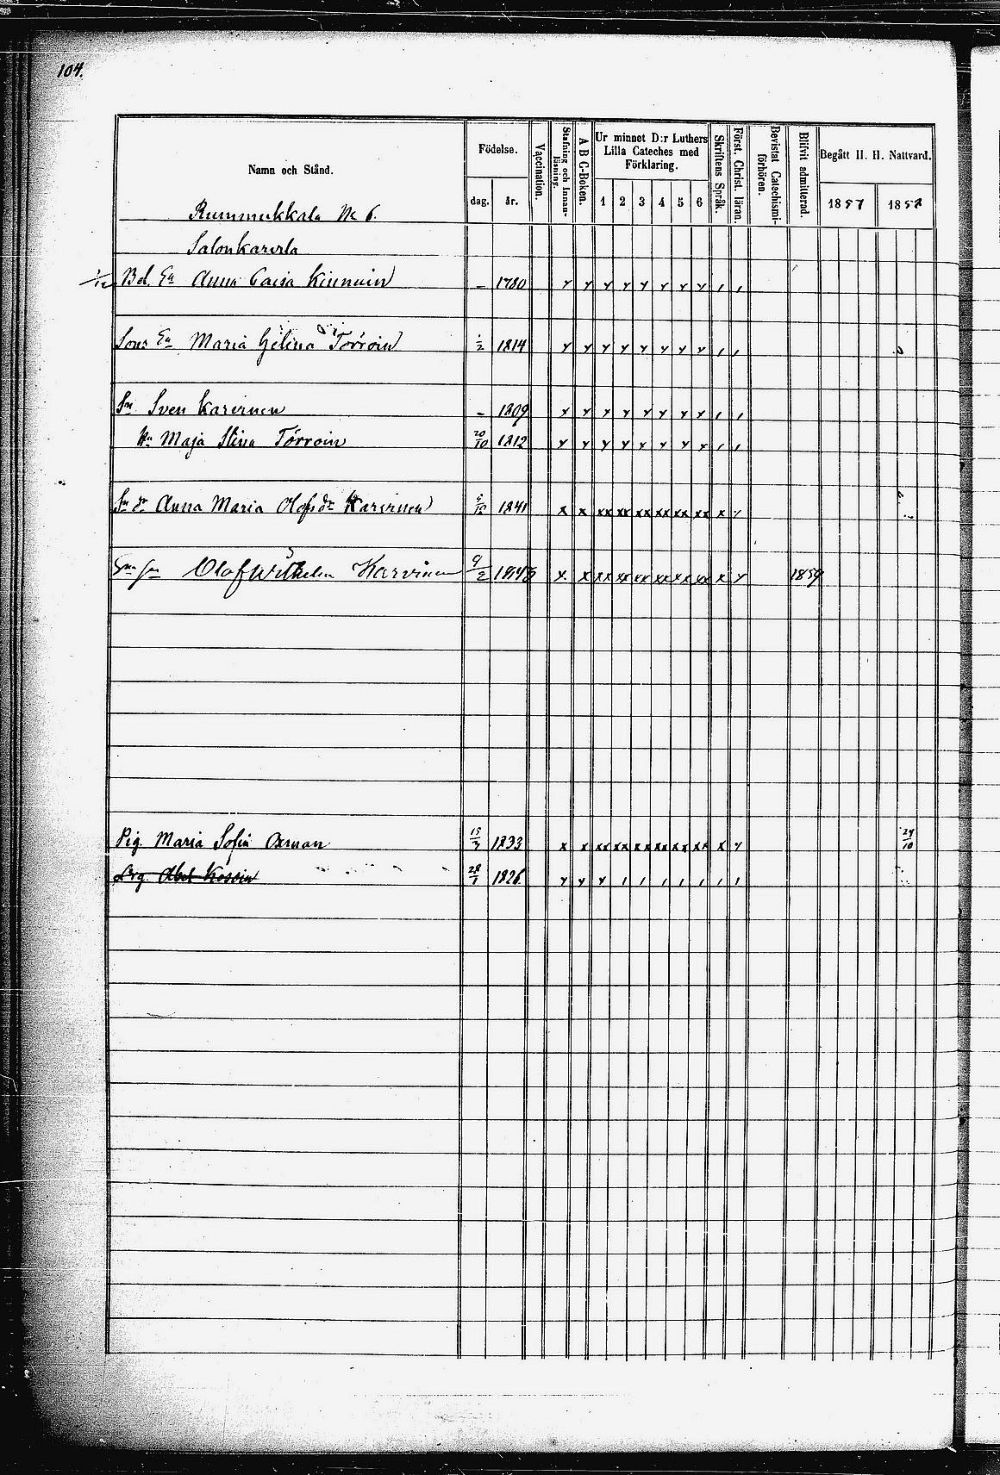 104.
Namn och Stånd.
Födelse.
dag.
år.
Vaccination.
Stafning och Innanläsning.
A B C-Boken.
Ur minnet D:r Luthers Lilla Cateches med Förklaring.
1 2 3 4 5 6
Skriftens Språk.
Först. Christ. läran.
Bevistat Catechismiförhören.
Blifvit admitterad.
Begått H. H. Nattvard.
1857 1858
Rummukkala № 6.
Salonkarvola
Bd. Ea Anna Caisa Kinnuin – 1780
Sons Ea Maria Helena Törröin 1814
Sn Sven Karvinen – 1809
Hu Maja Stina Törröin 20/10 1812
Sn dr Anna Maria Olofsdr Karvinen 1841
Sns Sn Olof Wilhelm Karvinen 9/2 1843 1859
Pig. Maria Sofia Oxman 15/7 1833 24/10
Drg. Abel Kossin 28/7 1826